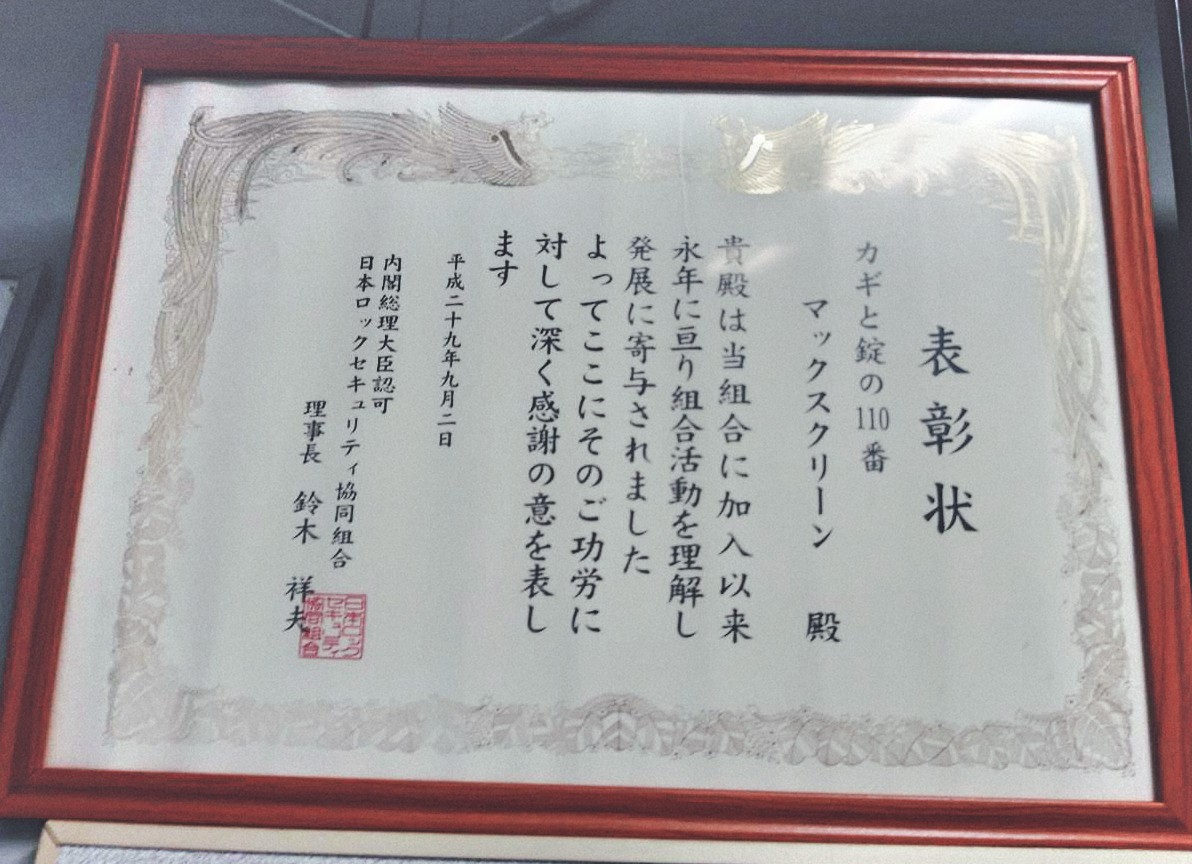 表彰状
カギと錠の110番
マックスクリーン 殿
貴殿は当組合に加入以来
永年に亘り組合活動を理解し
発展に寄与されました
よってここにそのご功労に
対して深く感謝の意を表し
ます
平成二十九年九月二日
内閣総理大臣認可
日本ロックセキュリティ協同組合
理事長 鈴木 祥夫
日本ロック
セキュリティ
協同組合